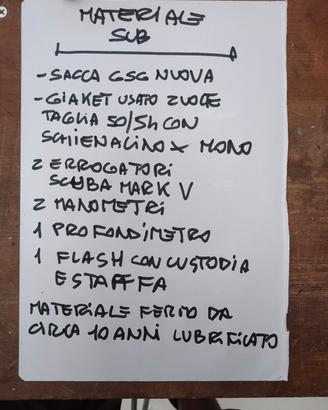 MATERIALE
SUB
- SACCA GSG NUOVA
- GIAKET USATO 2 VOLTE
TAGLIA 50/54 CON
SCHIENALINO X MONO
2 ERROGATORI
SCUBA MARK V
2 MANOMETRI
1 PROFONDIMETRO
1 FLASH CON CUSTODIA
E STAFFFA
MATERIALE FERMO DA
CIRCA 10 ANNI LUBRIFICATO